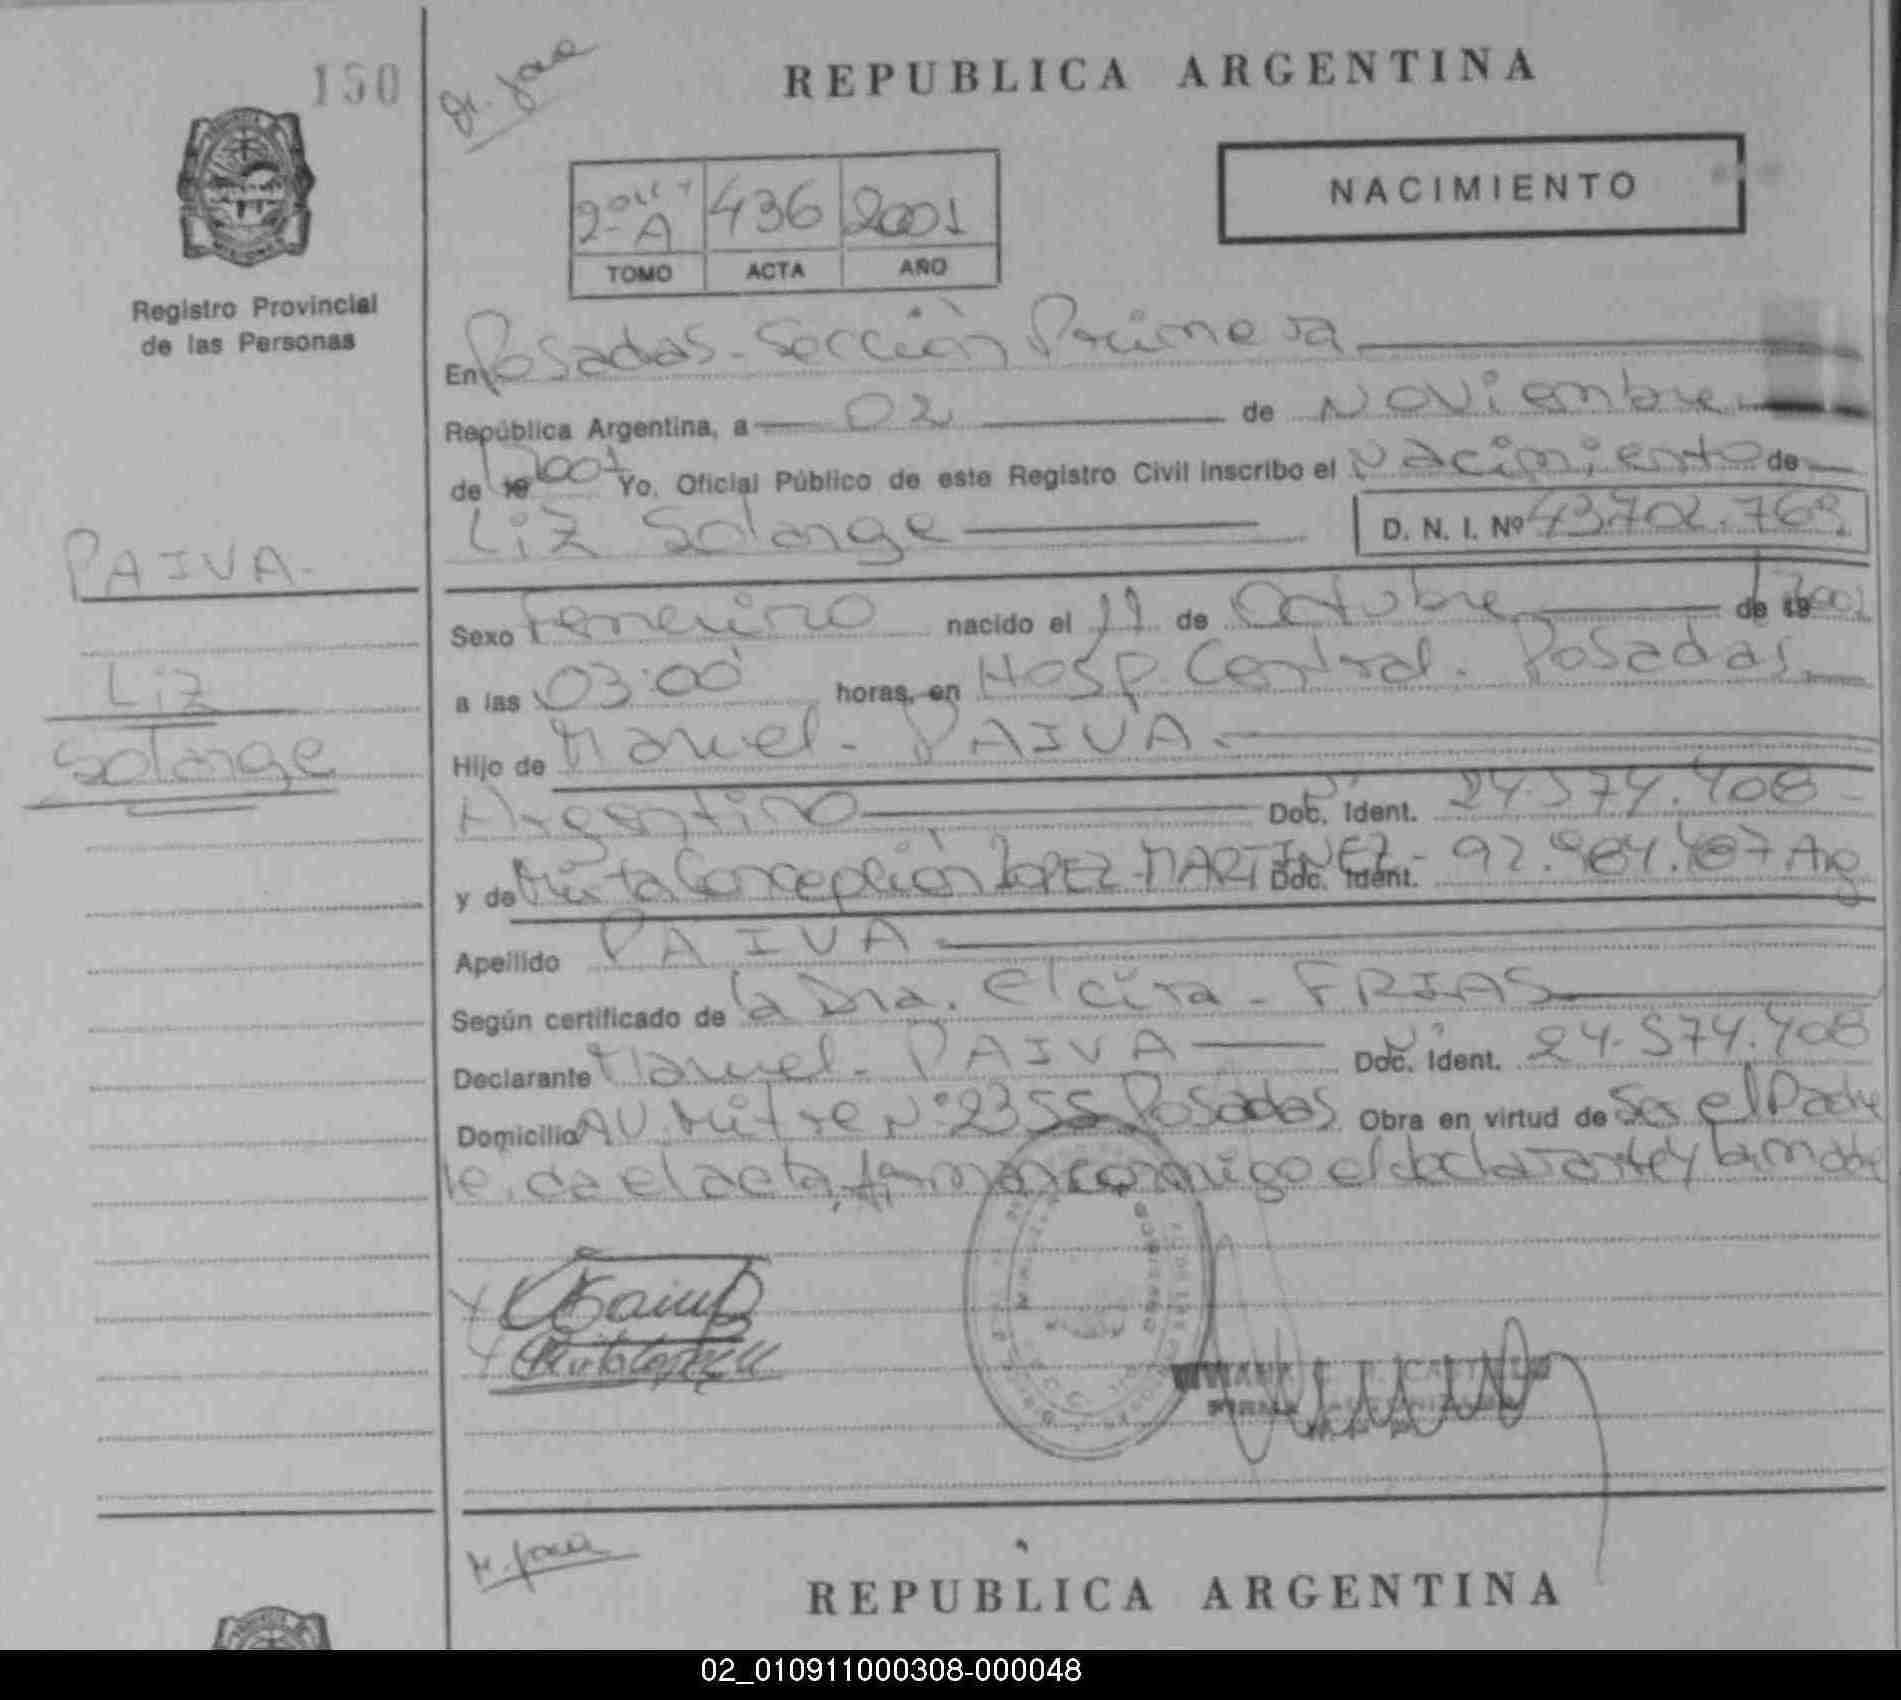 150
REPUBLICA ARGENTINA
NACIMIENTO
2º A 436 2001
TOMO ACTA AÑO
Registro Provincial
de las Personas
En Posadas - Sección Primera
República Argentina, a 02 de Noviembre
de 19 2001 Yo, Oficial Público de este Registro Civil inscribo el Nacimiento de
Liz Solange D. N. I. Nº 43.702.769
PAIVA
Liz
Solange
Sexo Femenino nacido el 11 de Octubre de 19 2001
a las 03:00 horas, en Hosp. Central. Posadas
Hijo de Manuel - PAIVA.
Argentino Doc. Ident. Nº 24.574.408
y de Mirta Concepción LOPEZ MARTINEZ - Doc. Ident. 92.984.487 Arg
Apellido PAIVA
Según certificado de la Dra. Elcira - FRIAS
Declarante Manuel - PAIVA Doc. Ident. Nº 24.574.408
Domicilio AV. Mitre Nº 2355 Posadas Obra en virtud de Ser el Padre
le. da el acta, firman conmigo el declarante y la madre
REPUBLICA ARGENTINA
02_010911000308-000048